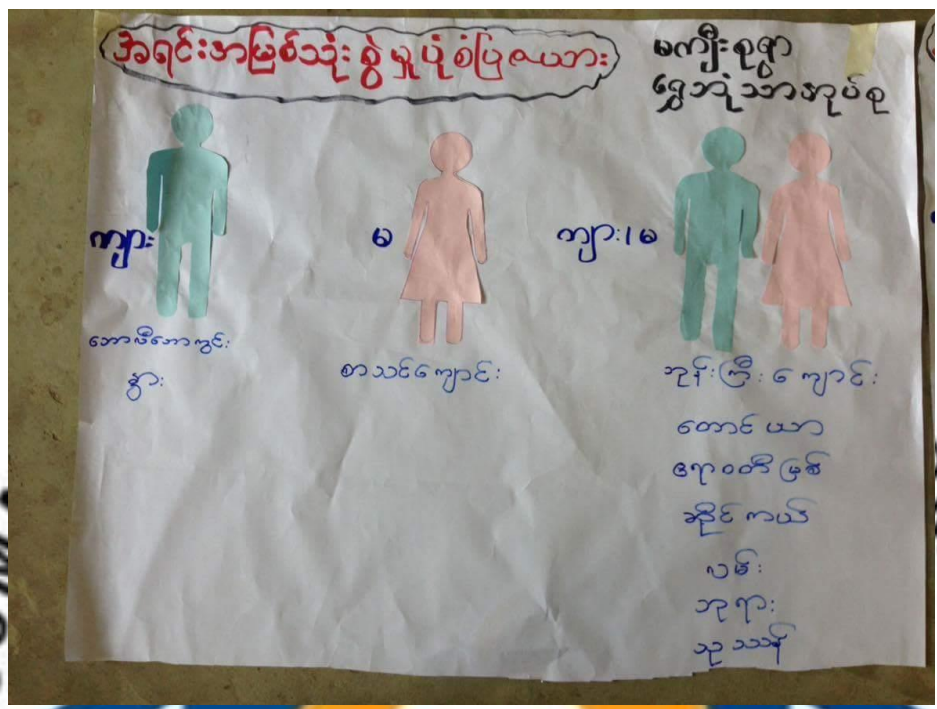 အရင်းအမြစ်သုံးစွဲမှုပုံစံပြဇယား
မကျီးစုရွာ
ရွှေဘုံသာအုပ်စု
ကျား
မ
ကျား/မ
ဘောလီဘောကွင်း
နွား
စာသင်ကျောင်း
ဘုန်းကြီးကျောင်း
တောင်ယာ
ဧရာဝတီမြစ်
ဆိုင်ကယ်
လမ်း
ဘုရား
သုဿာန်